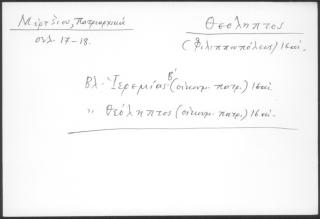 Μέρτζιου, Πατριαρχικά
σελ. 17-18.
Θεόληπτος
(Φιλιππουπόλεως) 16 αἰ.
Βλ. Ἱερεμίας Β΄ (οἰκουμ. πατρ.) 16 αἰ.
,, Θεόληπτος (οἰκουμ. πατρ.) 16 αἰ.